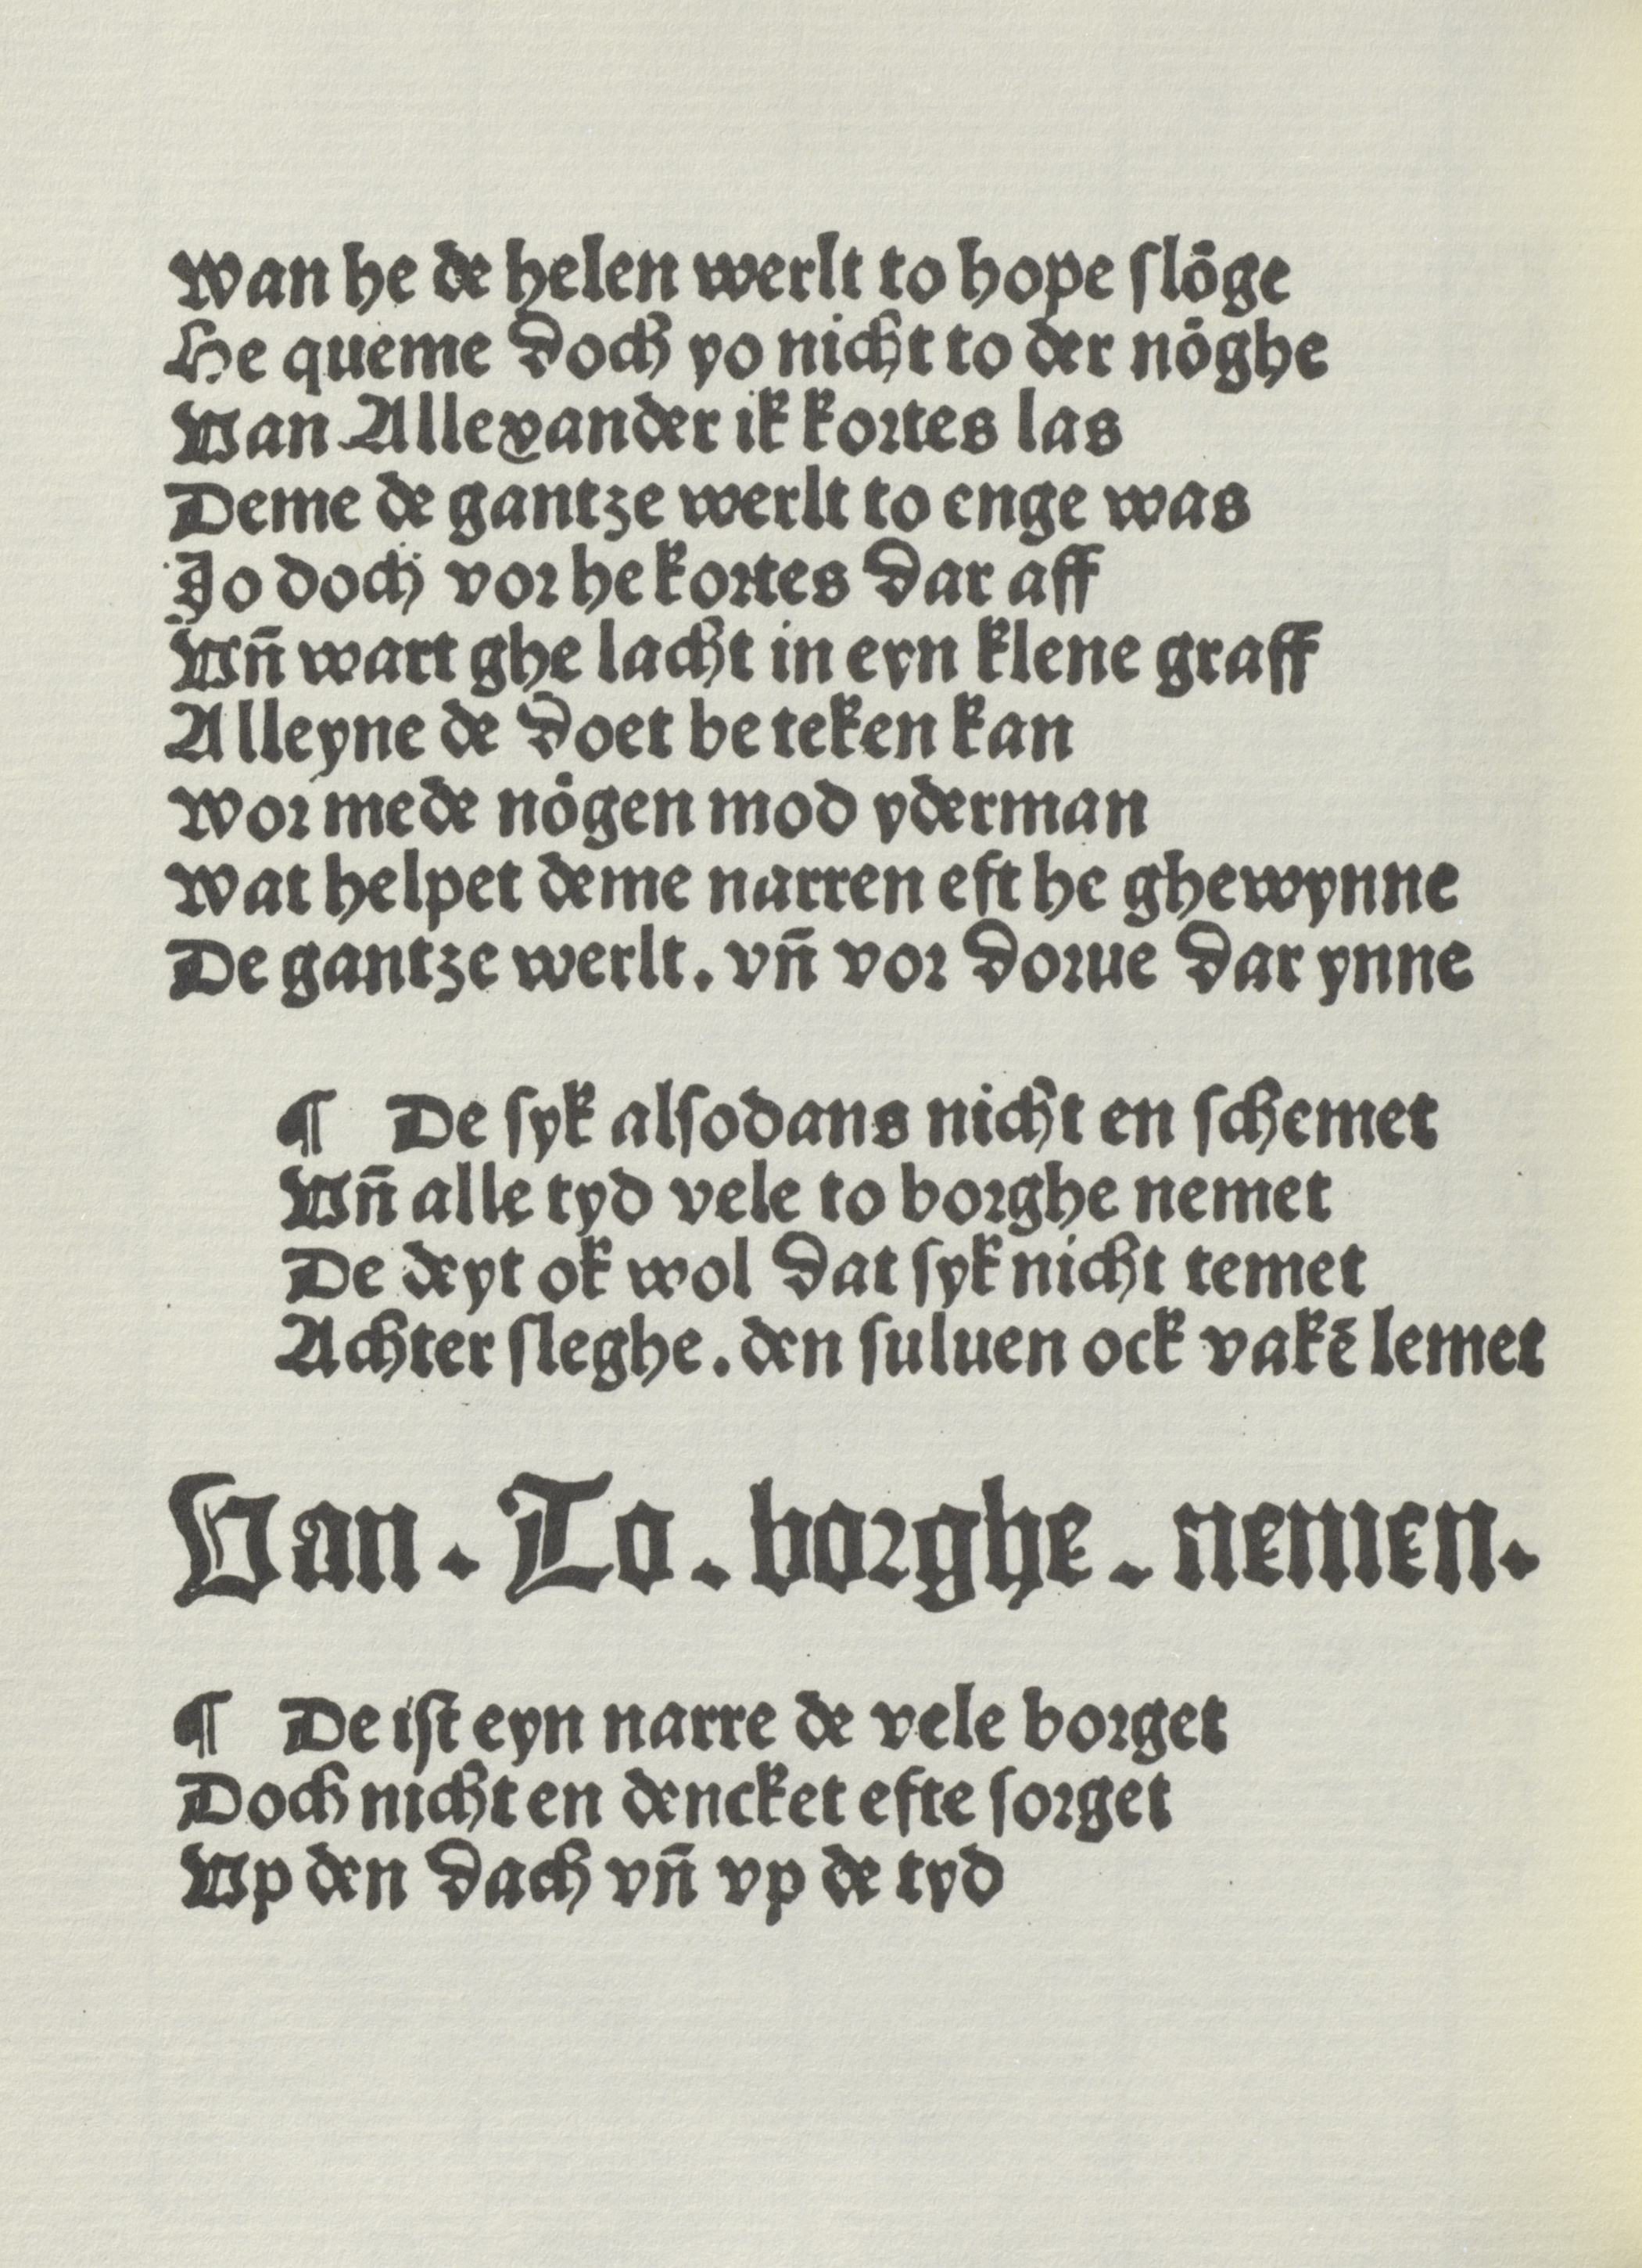 Wan he de helen werlt to hope ſlöge
He queme doch yo nicht to der nöghe
Van Allexander ik kortes las
Deme de gantze werlt to enge was
Jo doch vor he kortes dar aff
Vn̄ wart ghe lacht in eyn klene graff
Alleyne de doet be teken kan
Wor mede nögen mod yderman
Wat helpet deme narren eft he ghewynne
De gantze werlt. vn̄ vor dorue dar ynne
¶ De ſyk alſodans nicht en ſchemet
Vn̄ alle tyd vele to borghe nemet
De deyt ok wol dat ſyk nicht temet
Achter ſleghe. den ſuluen ock vakē lemet
Van. To. borghe. nemen.
¶ De iſt eyn narre de vele borget
Doch nicht en dencket efte ſorget
Vp den dach vn̄ vp de tyd